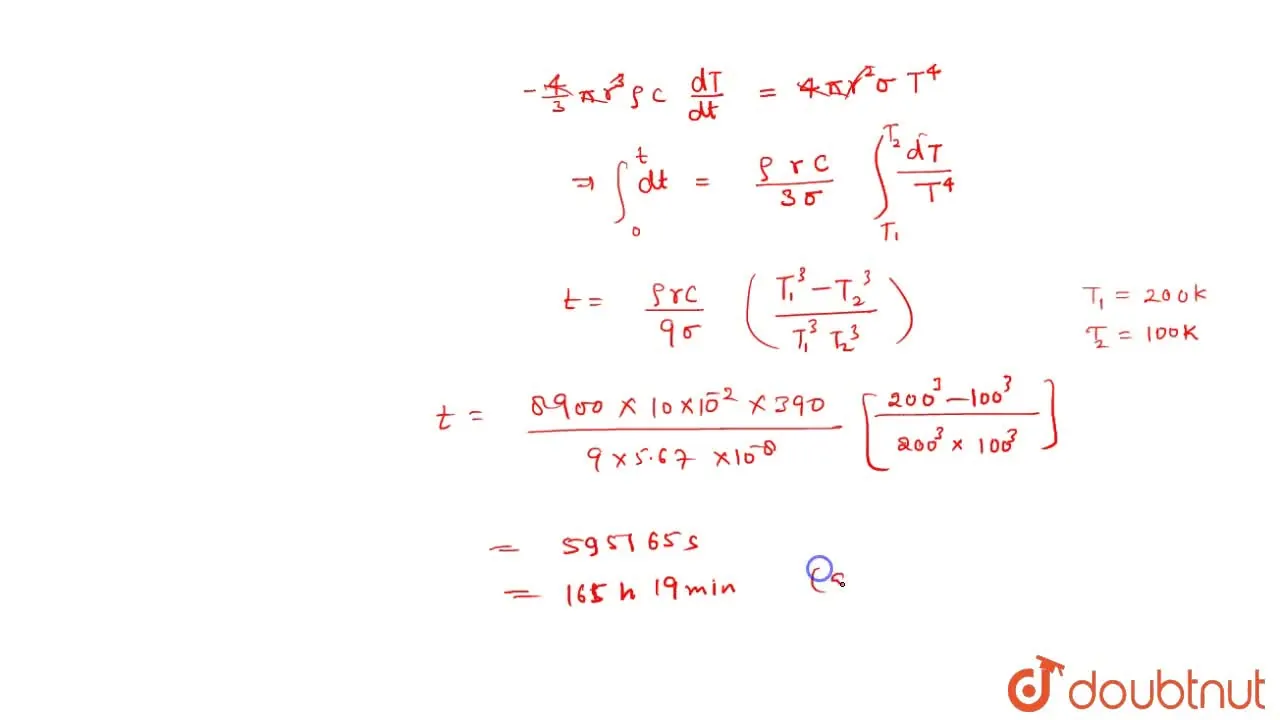 - 4/3 πr³ ρ c dT/dt = 4πr² σ T⁴
⇒ ∫₀ᵗ dt = ρ r c / 3σ ∫_T₁^T₂ dT / T⁴
t = ρrc / 9σ ( T₁³ – T₂³ / T₁³ T₂³ )
T₁ = 200k
T₂ = 100k
t = 8900 × 10×10⁻² × 390 / 9 × 5.67 × 10⁻⁸ [ 200³ – 100³ / 200³ × 100³ ]
= 595165 s
= 165 h 19 min
doubtnut